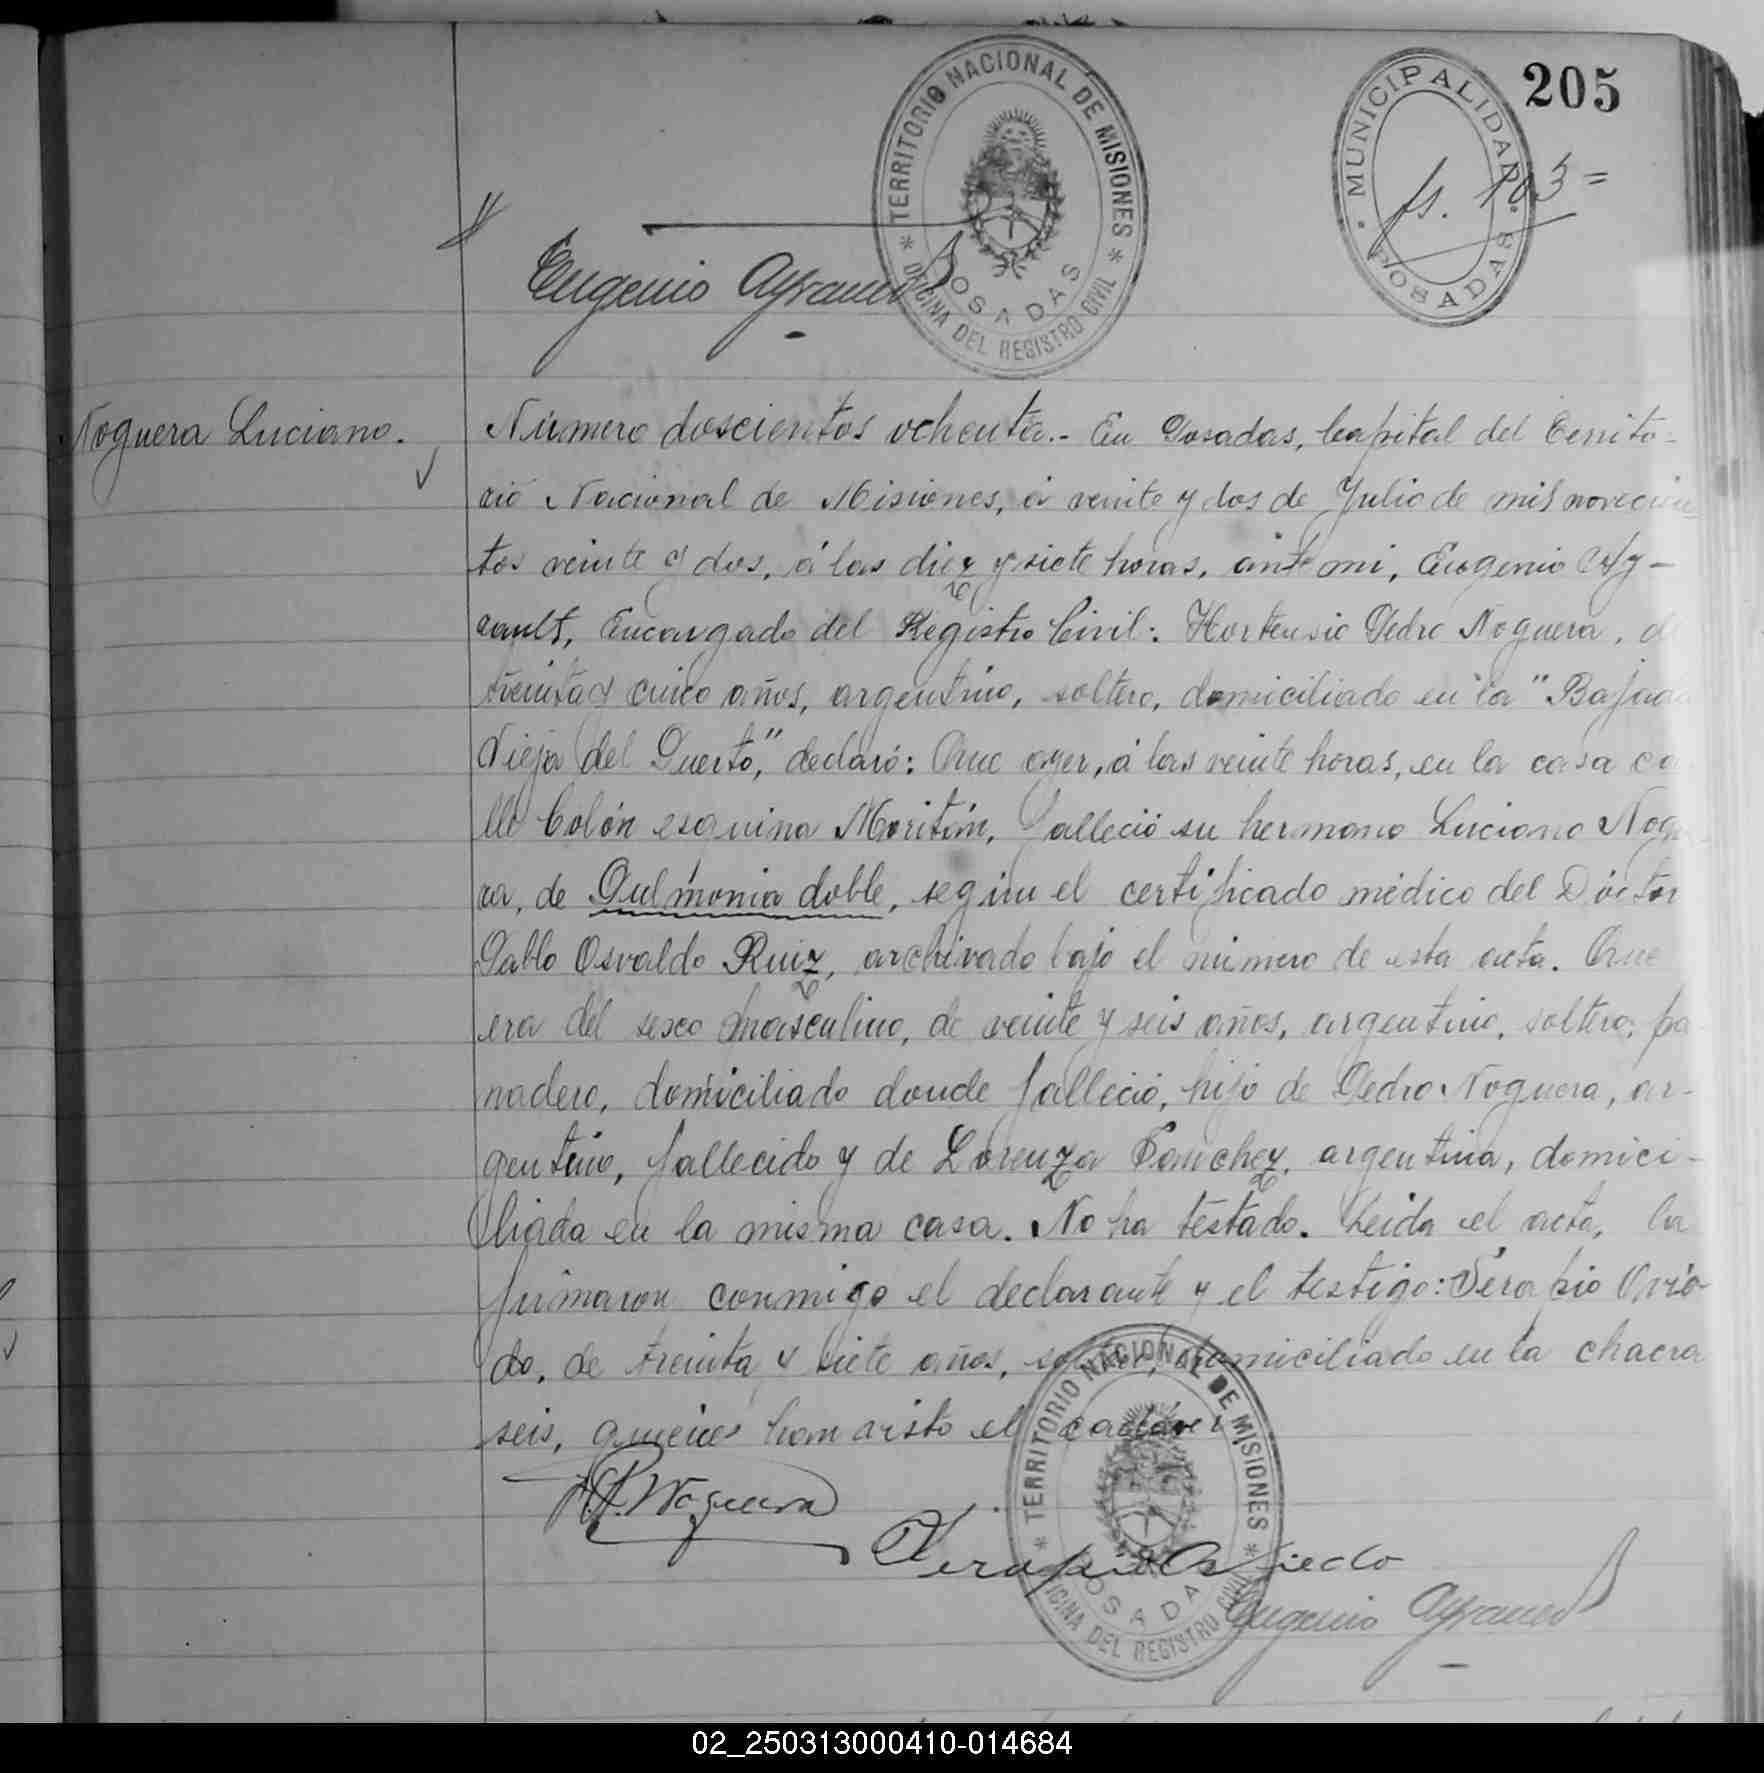 205
TERRITORIO NACIONAL DE MISIONES
POSADAS
OFICINA DEL REGISTRO CIVIL
MUNICIPALIDAD
POSADAS
fs. 103 =
Eugenio Ayrault
Noguera Luciano.
Número doscientos ochenta.- En Posadas, Capital del Territo-
rio Nacional de Misiones, á veinte y dos de Julio de mil novecien
tos veinte y dos, á las diez y siete horas, ante mi, Eugenio Ay-
rault, Encargado del Registro Civil: Hortensio Pedro Noguera, d
treinta y cinco años, argentino, soltero, domiciliado en la "Bajada
Vieja del Puerto," declaró: Que ayer, á las veinte horas, en la casa ca
lle Colón esquina Moritán, falleció su hermano Luciano Nogu
ra, de Pulmonia doble, según el certificado médico del Doctor
Pablo Osvaldo Ruiz, archivado bajo el número de esta acta. Que
era del sexo masculino, de veinte y seis años, argentino, soltero, pa
nadero, domiciliado donde falleció, hijo de Pedro Noguera, ar-
gentino, fallecido y de Lorenza Sanchez, argentina, domici-
liada en la misma casa. No ha testado. Leida el acta, la
firmaron conmigo el declarante y el testigo: Serapio Ovie-
do, de treinta y siete años, soltero, domiciliado en la chacra
seis, quienes han visto el cadáver.
H.P. Noguera
Serapio Oviedo
Eugenio Ayrault
TERRITORIO NACIONAL DE MISIONES
POSADAS
OFICINA DEL REGISTRO CIVIL
02_250313000410-014684